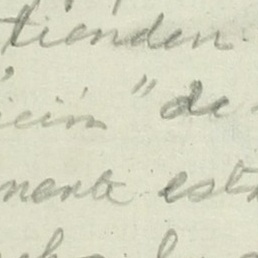 tienden
ición" de
mente est